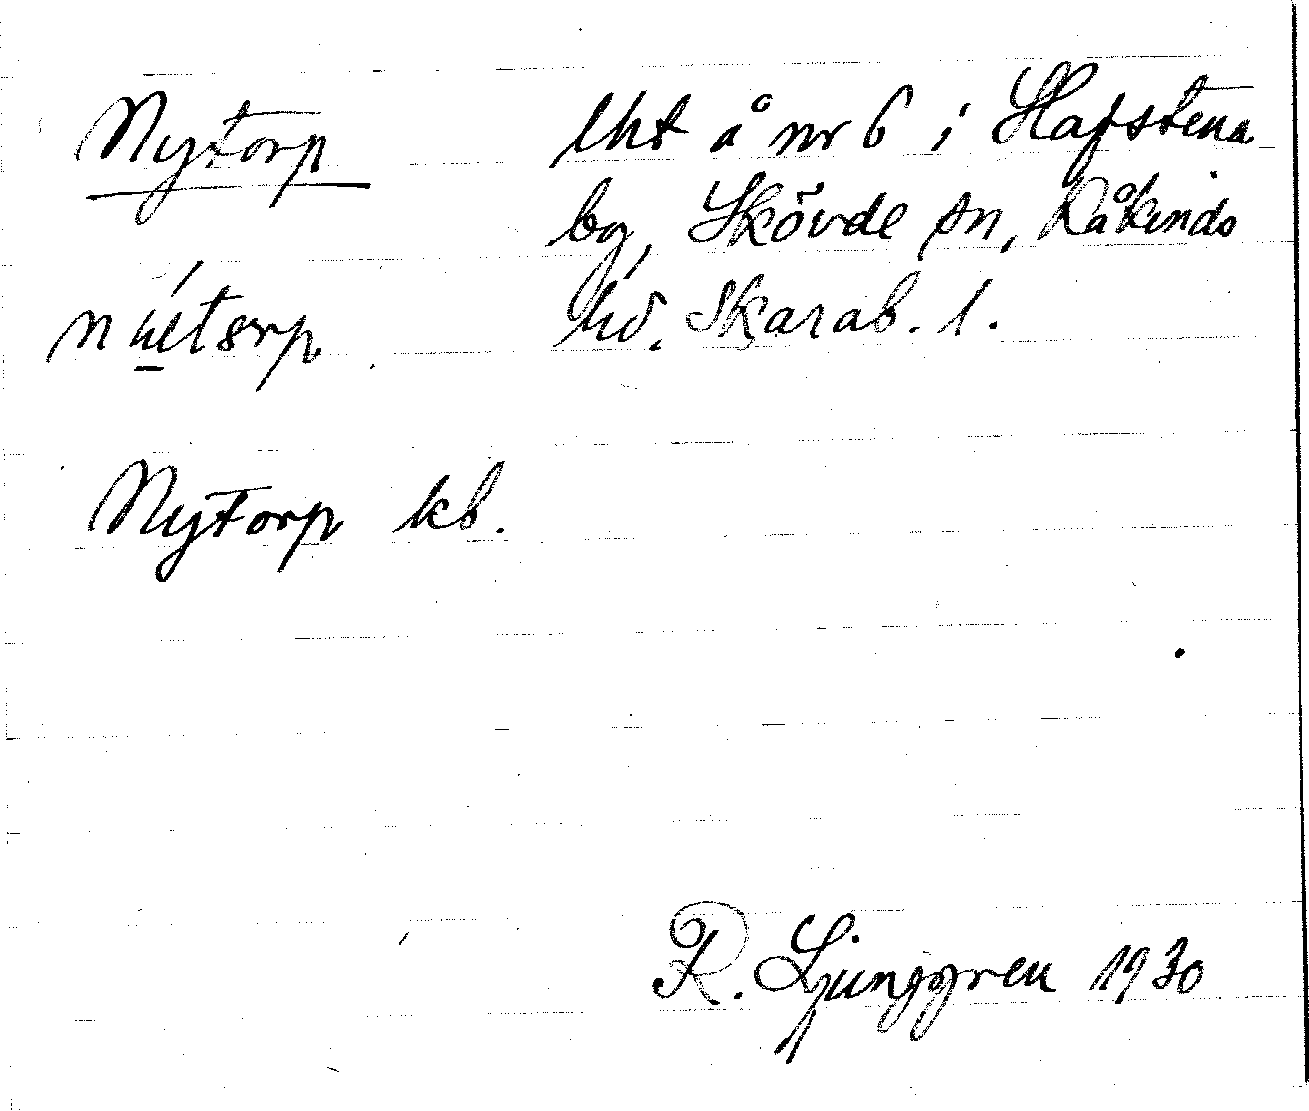 Nytorp lht å nr 6 i Hafstena
by, Skövde sn, Kåkinds
hd. Skarab. l.
Nytorp kb.
R. Ljunggren 1930